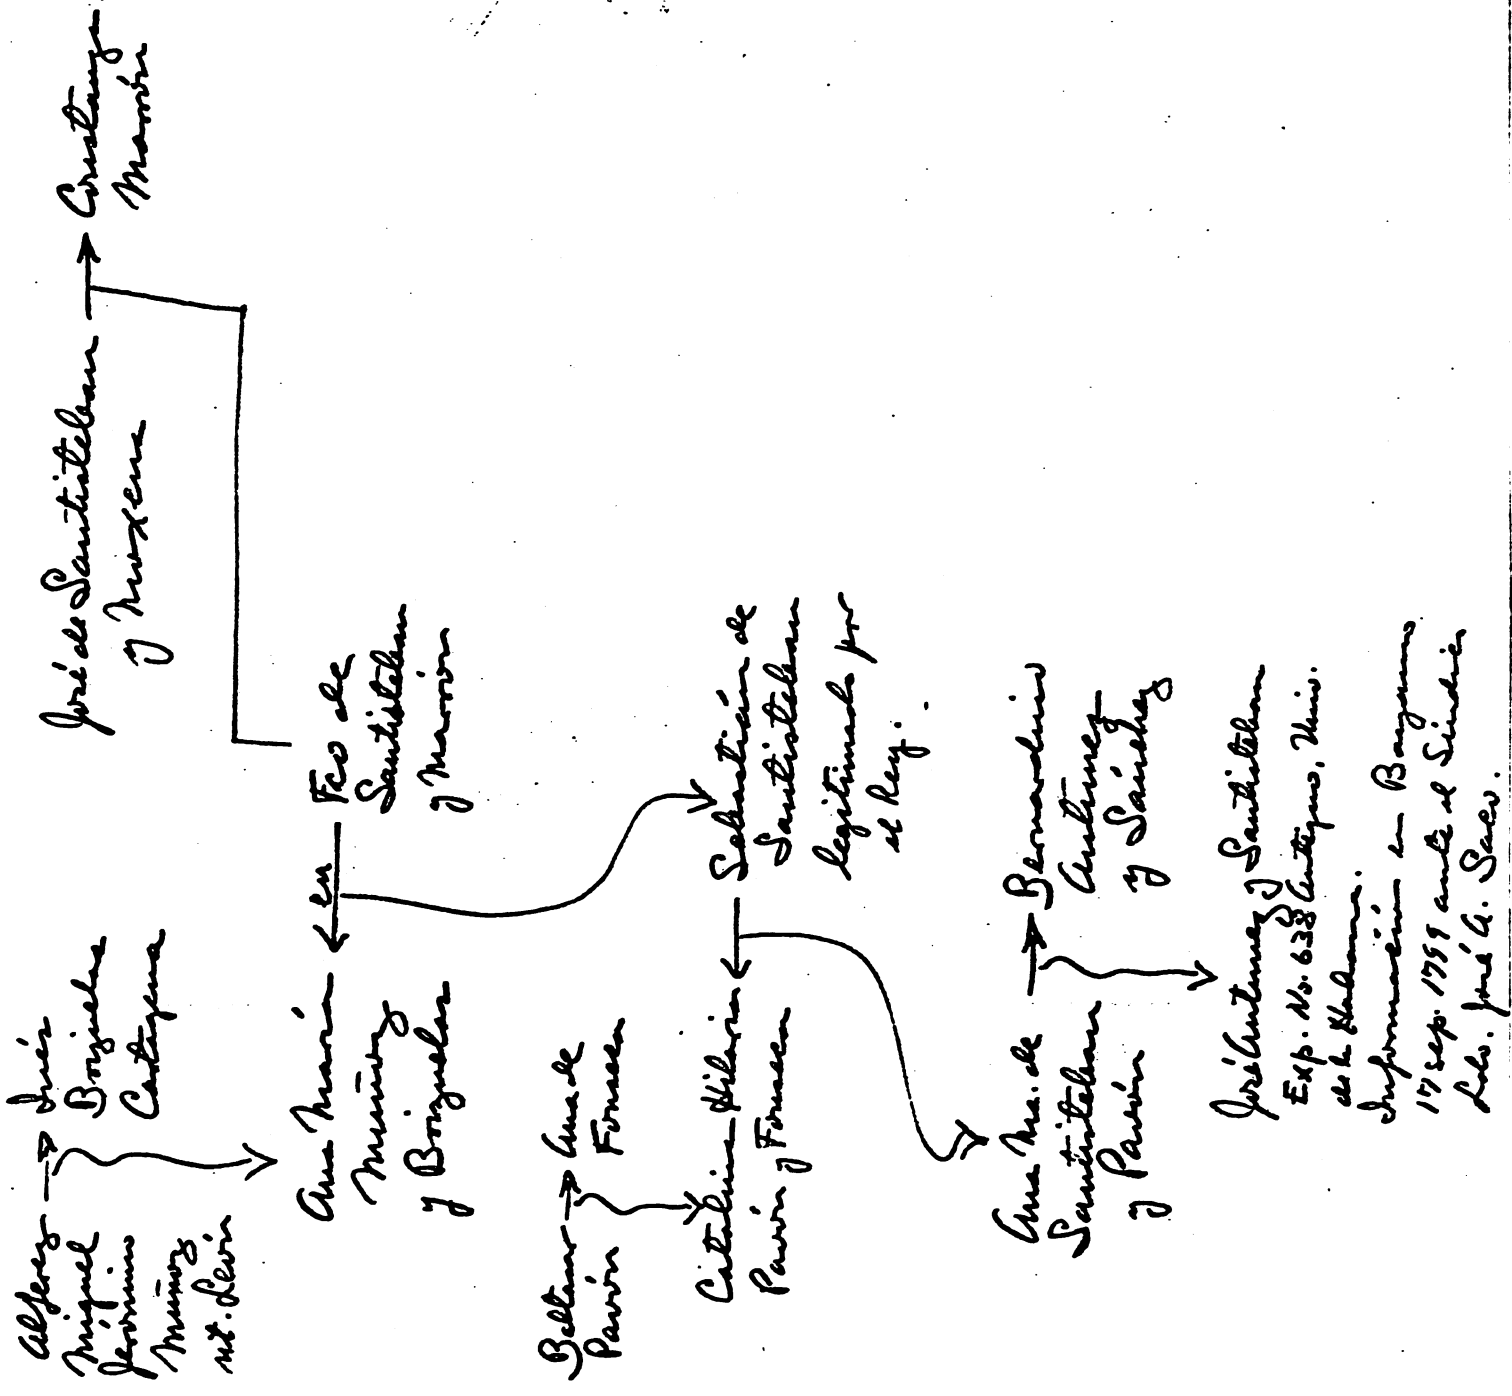 José de Santisteban
y Moxena
Constanza
Marrón
Alferez
Miguel
Jerónimo
Muñoz
nt. León
Inés
Borjuelas
Cartagena
Ana María
Muñoz
y Borjuelas
en
Fco de
Santisteban
y Marrón
Baltasar
Pavón
Ana de
Fonseca
Catalina Hilaria
Pavón y Fonseca
Sebastián de
Santisteban
legitimado por
el Rey.
Ana Ma. de
Santisteban
y Pavón
Bernardino
Antúnez
y Sánchez
José Antúnez y Santisteban
Exp. No. 638 Antiguo, Univ.
de la Habana.
Información en Bayamo
17 sep. 1799 ante el Síndico
Lcdo. José A. Saco.